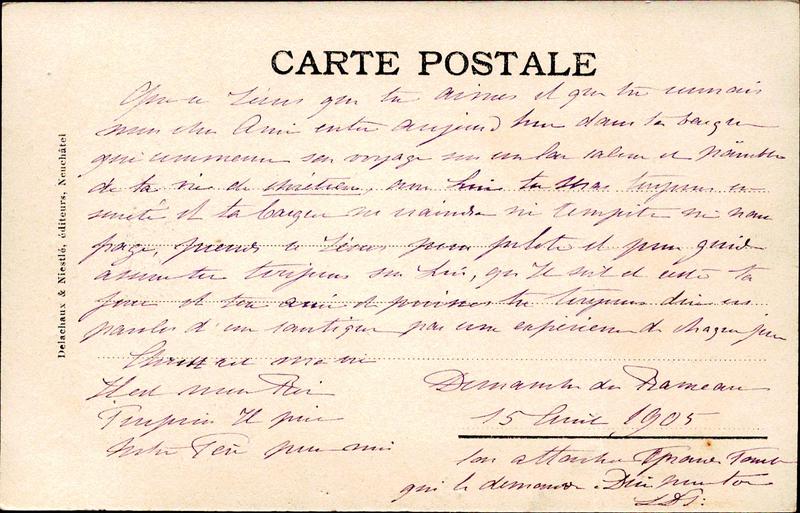 CARTE POSTALE
Que ce Jésus que tu aimes et que tu connais
mon cher Ami entre aujourd'hui dans ta barque
qui commence son voyage sur un lac calme et
de ta vie de chrétien, avec Lui tu seras toujours en
sureté et ta barque ne craindra ni tempête ni nau
frage, prends ce Jésus pour pilote et pour guide
toujours sur Lui, qu'Il soit et reste ta
force et ton ami et puisses-tu toujours dire ces
paroles d'un cantique par une expérience de chaque jour
Christ est ma vie
Il est mon Roi
Toujours Il prie
Notre Père pour moi
Dimanche des Rameaux
15 Avril 1905
ton
qui te demande à Dieu pour toi
Delachaux & Niestlé, éditeurs, Neuchâtel